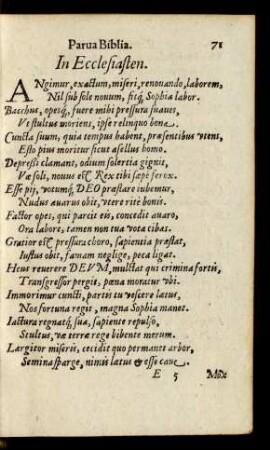 Parua Biblia. 71
In Ecclesiasten.
ANgimur, exactum, miseri, renouando, laborem,
Nil sub sole nouum, fitq́ Sophia labor.
Bacchus, opesq́, fuere mihi pressura suaues,
Ve stultus moriens, ipse relinquo bona.
Cuncta sium, quia tempus habent, præsentibus vtens,
Esto pius moritur sicut asellus homo.
Depressi clamant, odium solertia gignit,
Væ soli, nouus est Rex tibi sæpe ferox.
Esse pij, votumq́ DEO præstare iubemur,
Nudus auarus obit, vtere ritè bonis.
Factor opes, qui parcit eis, concedit auaro,
Ora labore, tamen non tua vota cibas.
Gratior est pressura choro, sapientia præstat,
Iustus obit, famam neglige, peca ligat.
Heus reuerere DEVM, mulctat qui crimina fortis,
Transgressor pergit, pœna moratur vbi.
Immorimur cuncti, partis tu vescere latus,
Nos fortuna regit, magna Sophia manet.
Iactura regnatq́, sua, sapiente repulso,
Stultus, væ terræ rege bibente merum.
Largitor miseris, cecidit quo permanet arbor,
Semina sparge, nimis latus & esse caue.
E 5 Mox